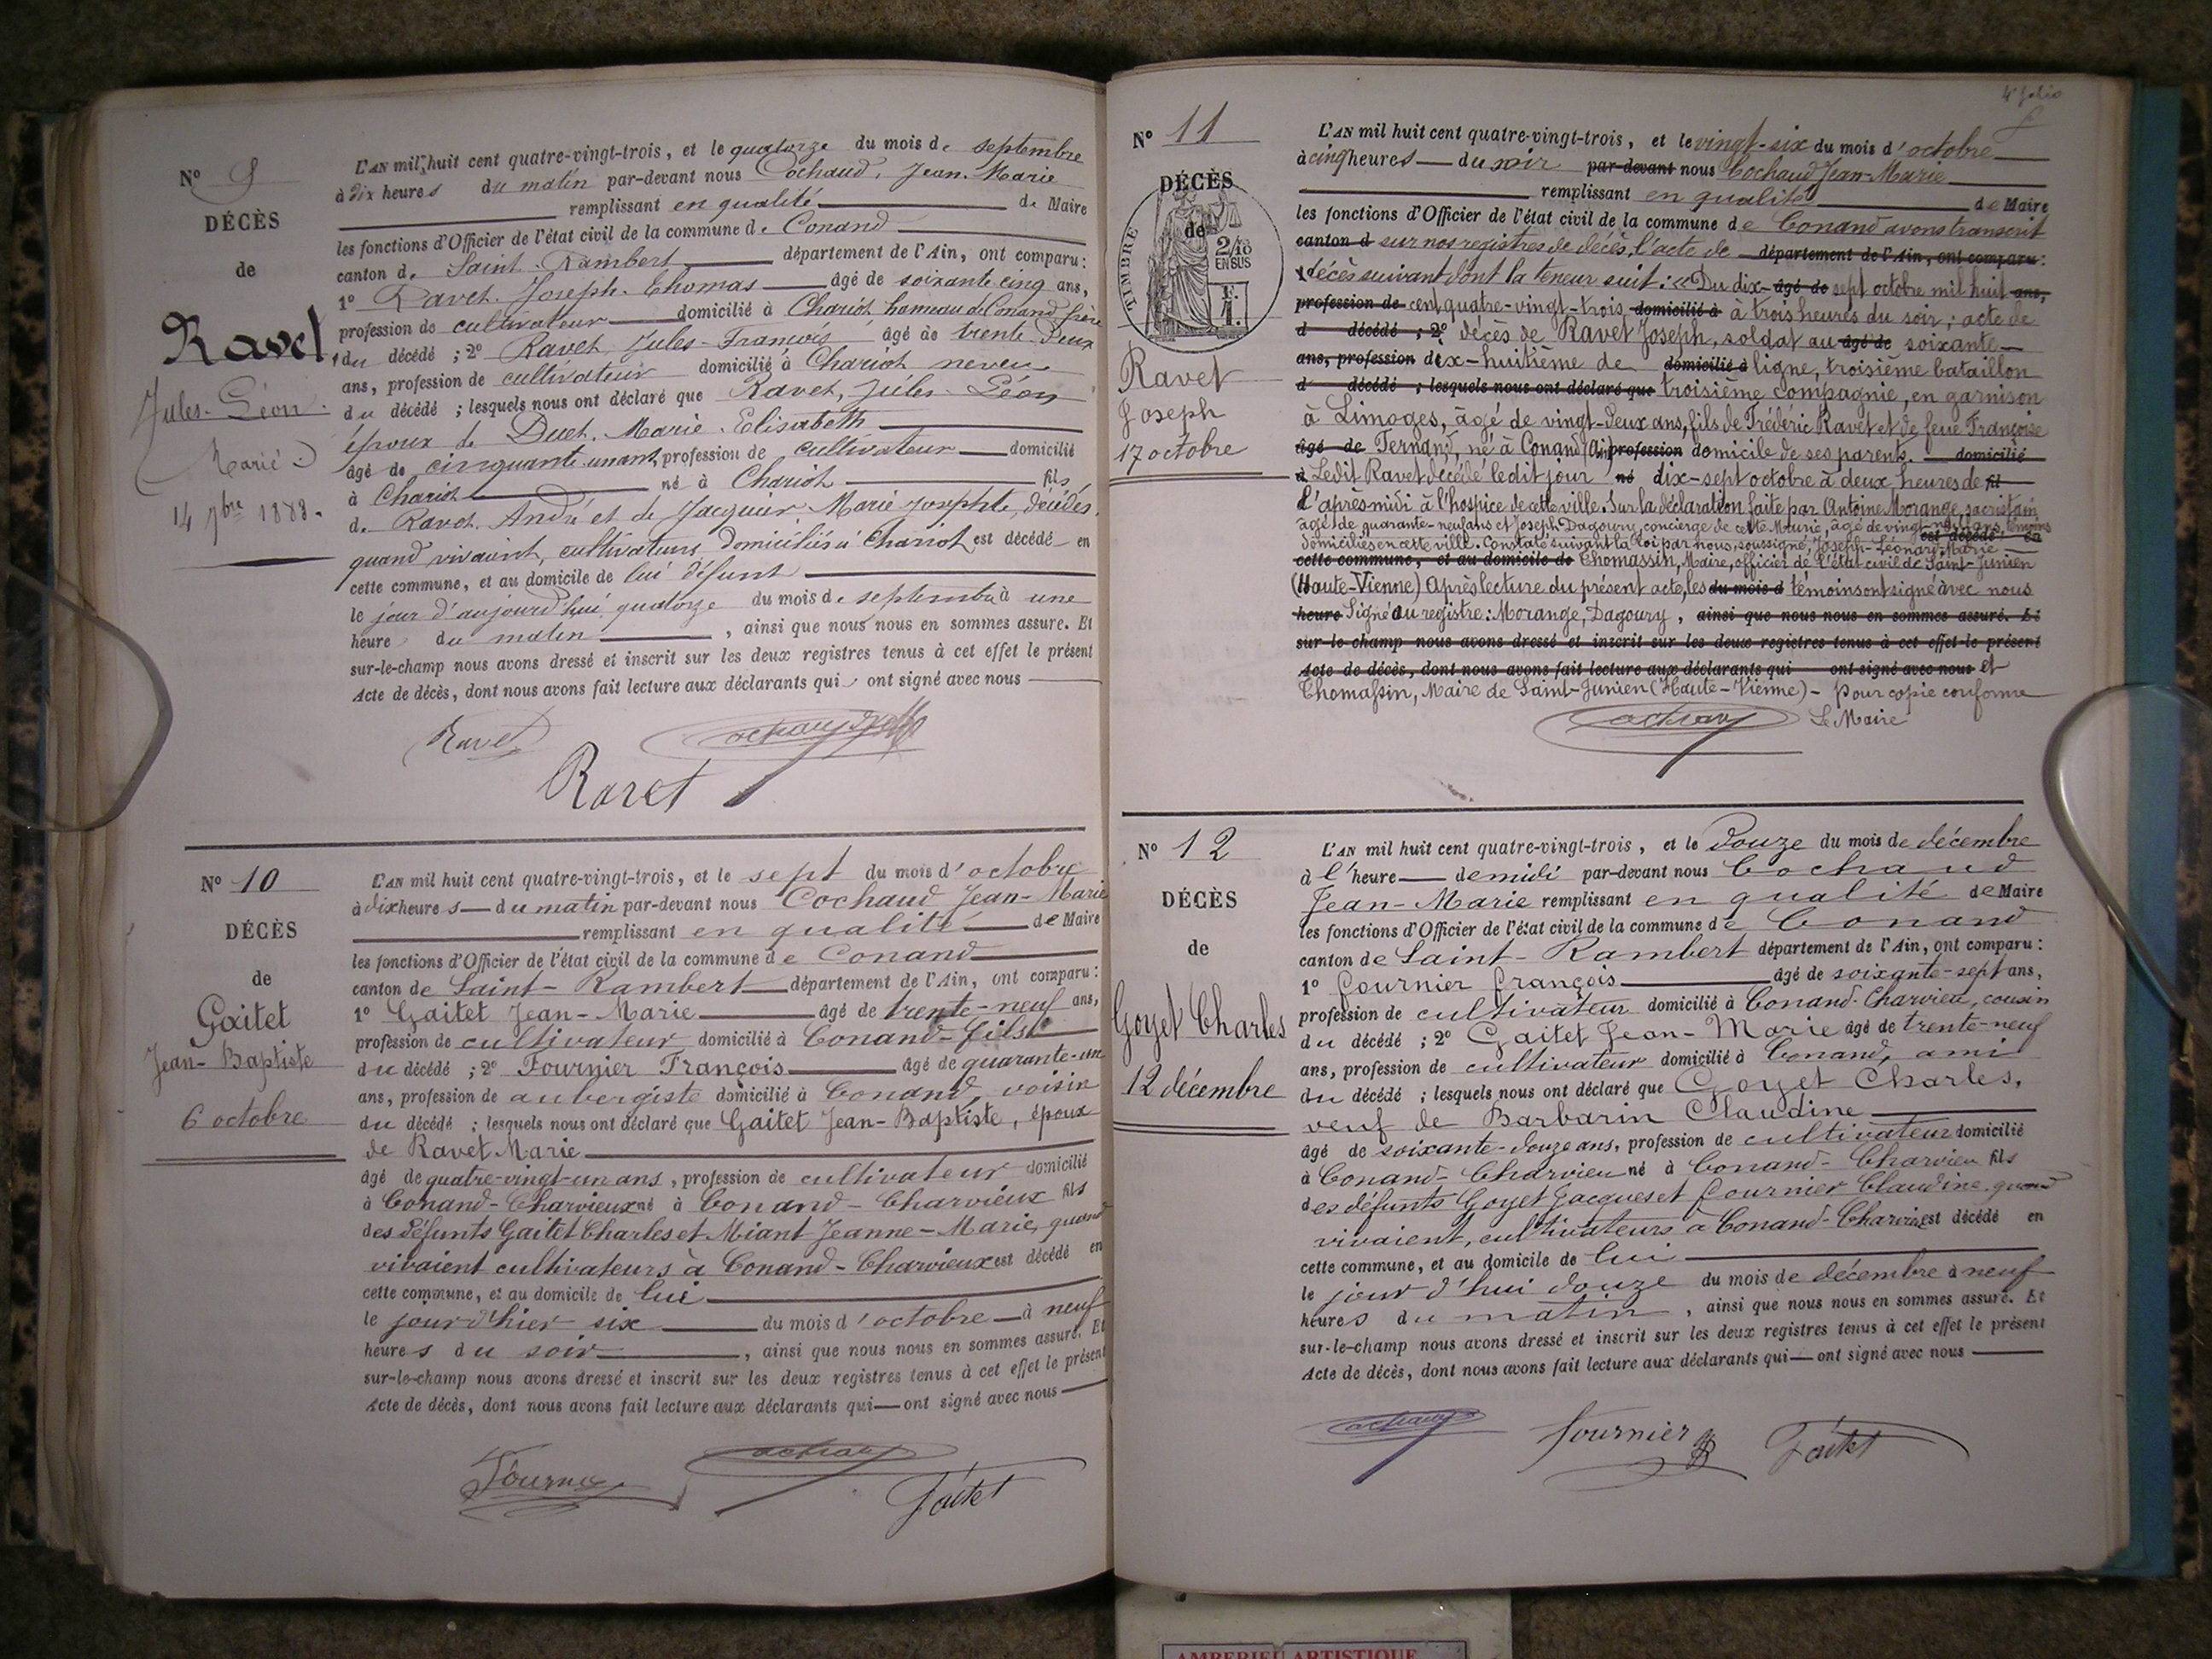 N° 9
DÉCÈS
de
Ravet,
Jules-Léon
Marié
14 7bre 1883.
L'AN mil huit cent quatre-vingt-trois, et le quatorze du mois de septembre
à dix heures du matin par-devant nous Cochaud, Jean-Marie
remplissant en qualité de Maire
les fonctions d'Officier de l'état civil de la commune de Conand
canton de Saint-Rambert département de l'Ain, ont comparu:
1° Ravet Joseph-Thomas âgé de soixante cinq ans,
profession de cultivateur domicilié à Chariot hameau de Conand frère
du décédé ; 2° Ravet, Jules-François âgé de trente deux
ans, profession de cultivateur domicilié à Chariot neveu
du décédé ; lesquels nous ont déclaré que Ravet, Jules Léon
époux de Duet. Marie-Elisabeth
âgé de cinquante-un ans, profession de cultivateur domicilié
à Chariot né à Chariot fils
de Ravet, André et de Jacquier Marie Josephte, décédés,
quand vivaient, cultivateurs domiciliés à Chariot est décédé en
cette commune, et au domicile de lui défunt
le jour d'aujourd'hui quatorze du mois de septembre à une
heure du matin, ainsi que nous nous en sommes assuré. Et
sur-le-champ nous avons dressé et inscrit sur les deux registres tenus à cet effet le présent
Acte de décès, dont nous avons fait lecture aux déclarants qui ont signé avec nous
Ravet
Cochaud
Ravet
N° 10
DÉCÈS
de
Gaitet
Jean-Baptiste
6 octobre
L'AN mil huit cent quatre-vingt-trois, et le sept du mois d'octobre
à dix heures du matin par-devant nous Cochaud Jean-Marie
remplissant en qualité de Maire
les fonctions d'Officier de l'état civil de la commune de Conand
canton de Saint-Rambert département de l'Ain, ont comparu:
1° Gaitet Jean-Marie âgé de trente-neuf ans,
profession de cultivateur domicilié à Conand-fils
du décédé ; 2° Fournier François âgé de quarante-un
ans, profession de aubergiste domicilié à Conand, voisin
du décédé ; lesquels nous ont déclaré que Gaitet Jean-Baptiste, époux
de Ravet Marie
âgé de quatre-vingt-un ans, profession de cultivateur domicilié
à Conand-Charvieux né à Conand-Charvieux fils
des défunts Gaitet Charles et Miant Jeanne-Marie, quand
vivaient cultivateurs à Conand-Charvieux est décédé en
cette commune, et au domicile de lui
le jour d'hier six du mois d'octobre à neuf
heures du soir, ainsi que nous nous en sommes assuré. Et
sur-le-champ nous avons dressé et inscrit sur les deux registres tenus à cet effet le présent
Acte de décès, dont nous avons fait lecture aux déclarants qui ont signé avec nous
Fournier
Cochaud
Gaitet
4e folio
N° 11
DÉCÈS
de
TIMBRE
2/10
EN SUS
Ravet
Joseph
17 octobre
L'AN mil huit cent quatre-vingt-trois, et le vingt-six du mois d'octobre
à cinq heures du soir par-devant nous Cochaud Jean-Marie
remplissant en qualité de Maire
les fonctions d'Officier de l'état civil de la commune de Conand avons transcrit
canton d sur nos registres de décès, l'acte de département de l'Ain, ont comparu:
1° décès suivant dont la teneur suit: «Du dix- âgé de sept octobre mil huit ans,
profession de cent quatre-vingt-trois domicilié à à trois heures du soir; acte de
d décédé ; 2° décès de Ravet Joseph, soldat au âgé de soixante-
ans, profession dix-huitième de domicilié à ligne, troisième bataillon
d décédé ; lesquels nous ont déclaré que troisième compagnie, en garnison
à Limoges, âgé de vingt-deux ans, fils de Frédéric Ravet et de feue Françoise
âgé de Fernand, né à Conand (Ain) profession domicile de ses parents. domicilié
à Ledit Ravet décédé ledit jour né dix-sept octobre à deux heures de fil
l'après midi à l'hospice de cette ville. Sur la déclaration faite par Antoine Morange, sacristain
âgé de quarante-neuf ans et Joseph Dagoury, concierge de cette Mairie, âgé de vingt-neuf ans, témoins
domiciliés en cette ville. Constaté suivant la loi par nous, soussigné, Joseph-Léonard Marie est décédé en
cette commune, et au domicile de Thomassin, Maire, officier de l'état civil de Saint-Junien
(Haute-Vienne) Après lecture du présent acte, les du mois d témoins ont signé avec nous
heure Signé au registre: Morange, Dagoury, ainsi que nous nous en sommes assuré. Et
sur-le-champ nous avons dressé et inscrit sur les deux registres tenus à cet effet le présent
Acte de décès, dont nous avons fait lecture aux déclarants qui ont signé avec nous et
Thomassin, Maire de Saint-Junien (Haute-Vienne) - Pour copie conforme
Le Maire
Cochaud
N° 12
DÉCÈS
de
Goyet Charles
12 décembre
L'AN mil huit cent quatre-vingt-trois, et le Douze du mois de décembre
à l'heure de midi par-devant nous Cochaud
Jean-Marie remplissant en qualité de Maire
les fonctions d'Officier de l'état civil de la commune de Conand
canton de Saint-Rambert département de l'Ain, ont comparu:
1° Fournier François âgé de soixante-sept ans,
profession de cultivateur domicilié à Conand-Charvieu, cousin
du décédé ; 2° Gaitet Jean-Marie âgé de trente-neuf
ans, profession de cultivateur domicilié à Conand, ami
du décédé ; lesquels nous ont déclaré que Goyet Charles,
veuf de Barbarin Claudine
âgé de soixante-douze ans, profession de cultivateur domicilié
à Conand-Charvieu né à Conand-Charvieu fils
des défunts Goyet Jacques et Fournier Claudine quand
vivaient, cultivateurs à Conand-Charvieu est décédé en
cette commune, et au domicile de lui
le jour d'hui douze du mois de décembre à neuf
heures du matin, ainsi que nous nous en sommes assuré. Et
sur-le-champ nous avons dressé et inscrit sur les deux registres tenus à cet effet le présent
Acte de décès, dont nous avons fait lecture aux déclarants qui ont signé avec nous
Cochaud
Fournier
Gaitet
AMBERIEU ARTISTIQUE